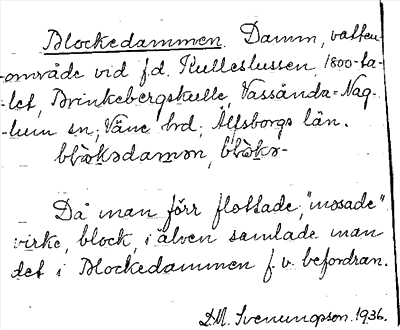 Blockedammen. Damm, vatten-
-område vid f.d. Kulleslussen, 1800-ta-
-let, Brinkebergskulle, Vassända=Nag-
-lum sn; Väne hd; Älfsborgs län.
Då man förr flottade, "mosade"
virke, block, i älven samlade man
det i Blockedammen f. v. befordran.
D.M. Svenungsson. 1936.